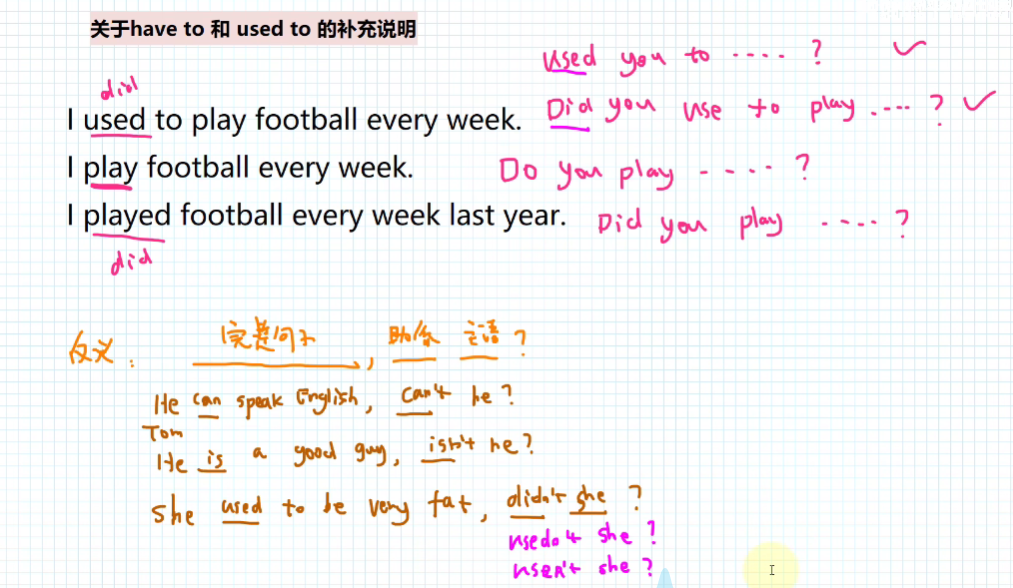 关于have to 和 used to 的补充说明
used you to ····?
did
I used to play football every week.
Did you use to play ····?
I play football every week.
Do you play ····?
I played football every week last year.
Did you play ····?
did
反义:
完整句子, 助/系 主语?
He can speak English, can't he?
Tom
He is a good guy, isn't he?
She used to be very fat, didn't she?
usedn't she?
usen't she?